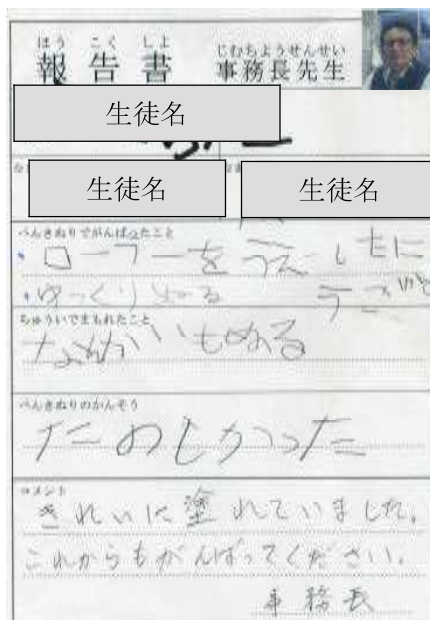 ほうこくしょ じむちょうせんせい
報告書 事務長先生
生徒名
生徒名 生徒名
ぺんきぬりでがんばったこと
・ローラーを うえ しもに
・ゆっくり ぬる うごかす
ちゅういでまもれたこと
ぺんきぬりのかんそう
たのしかった
コメント
きれいに塗れていました。
これからもがんばってください。
事務長